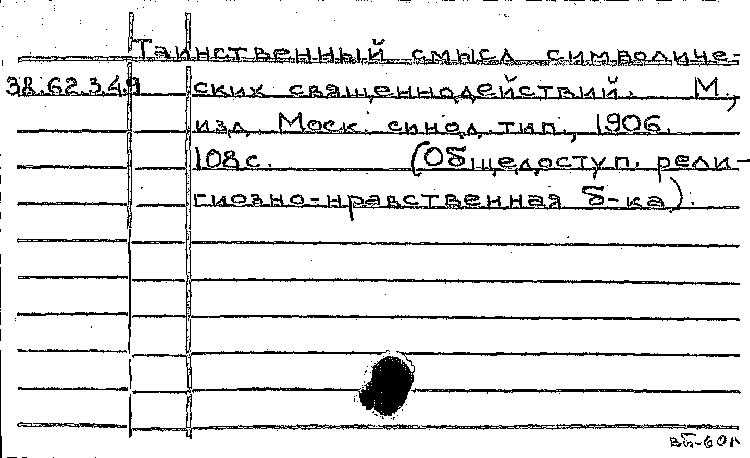 Таинственный смысл символиче-
38.62.3.49 ских священнодействий. М.,
изд. Моск. синод. тип., 1906.
108 с. (Общедоступ. рели-
гиозно-нравственная б-ка).